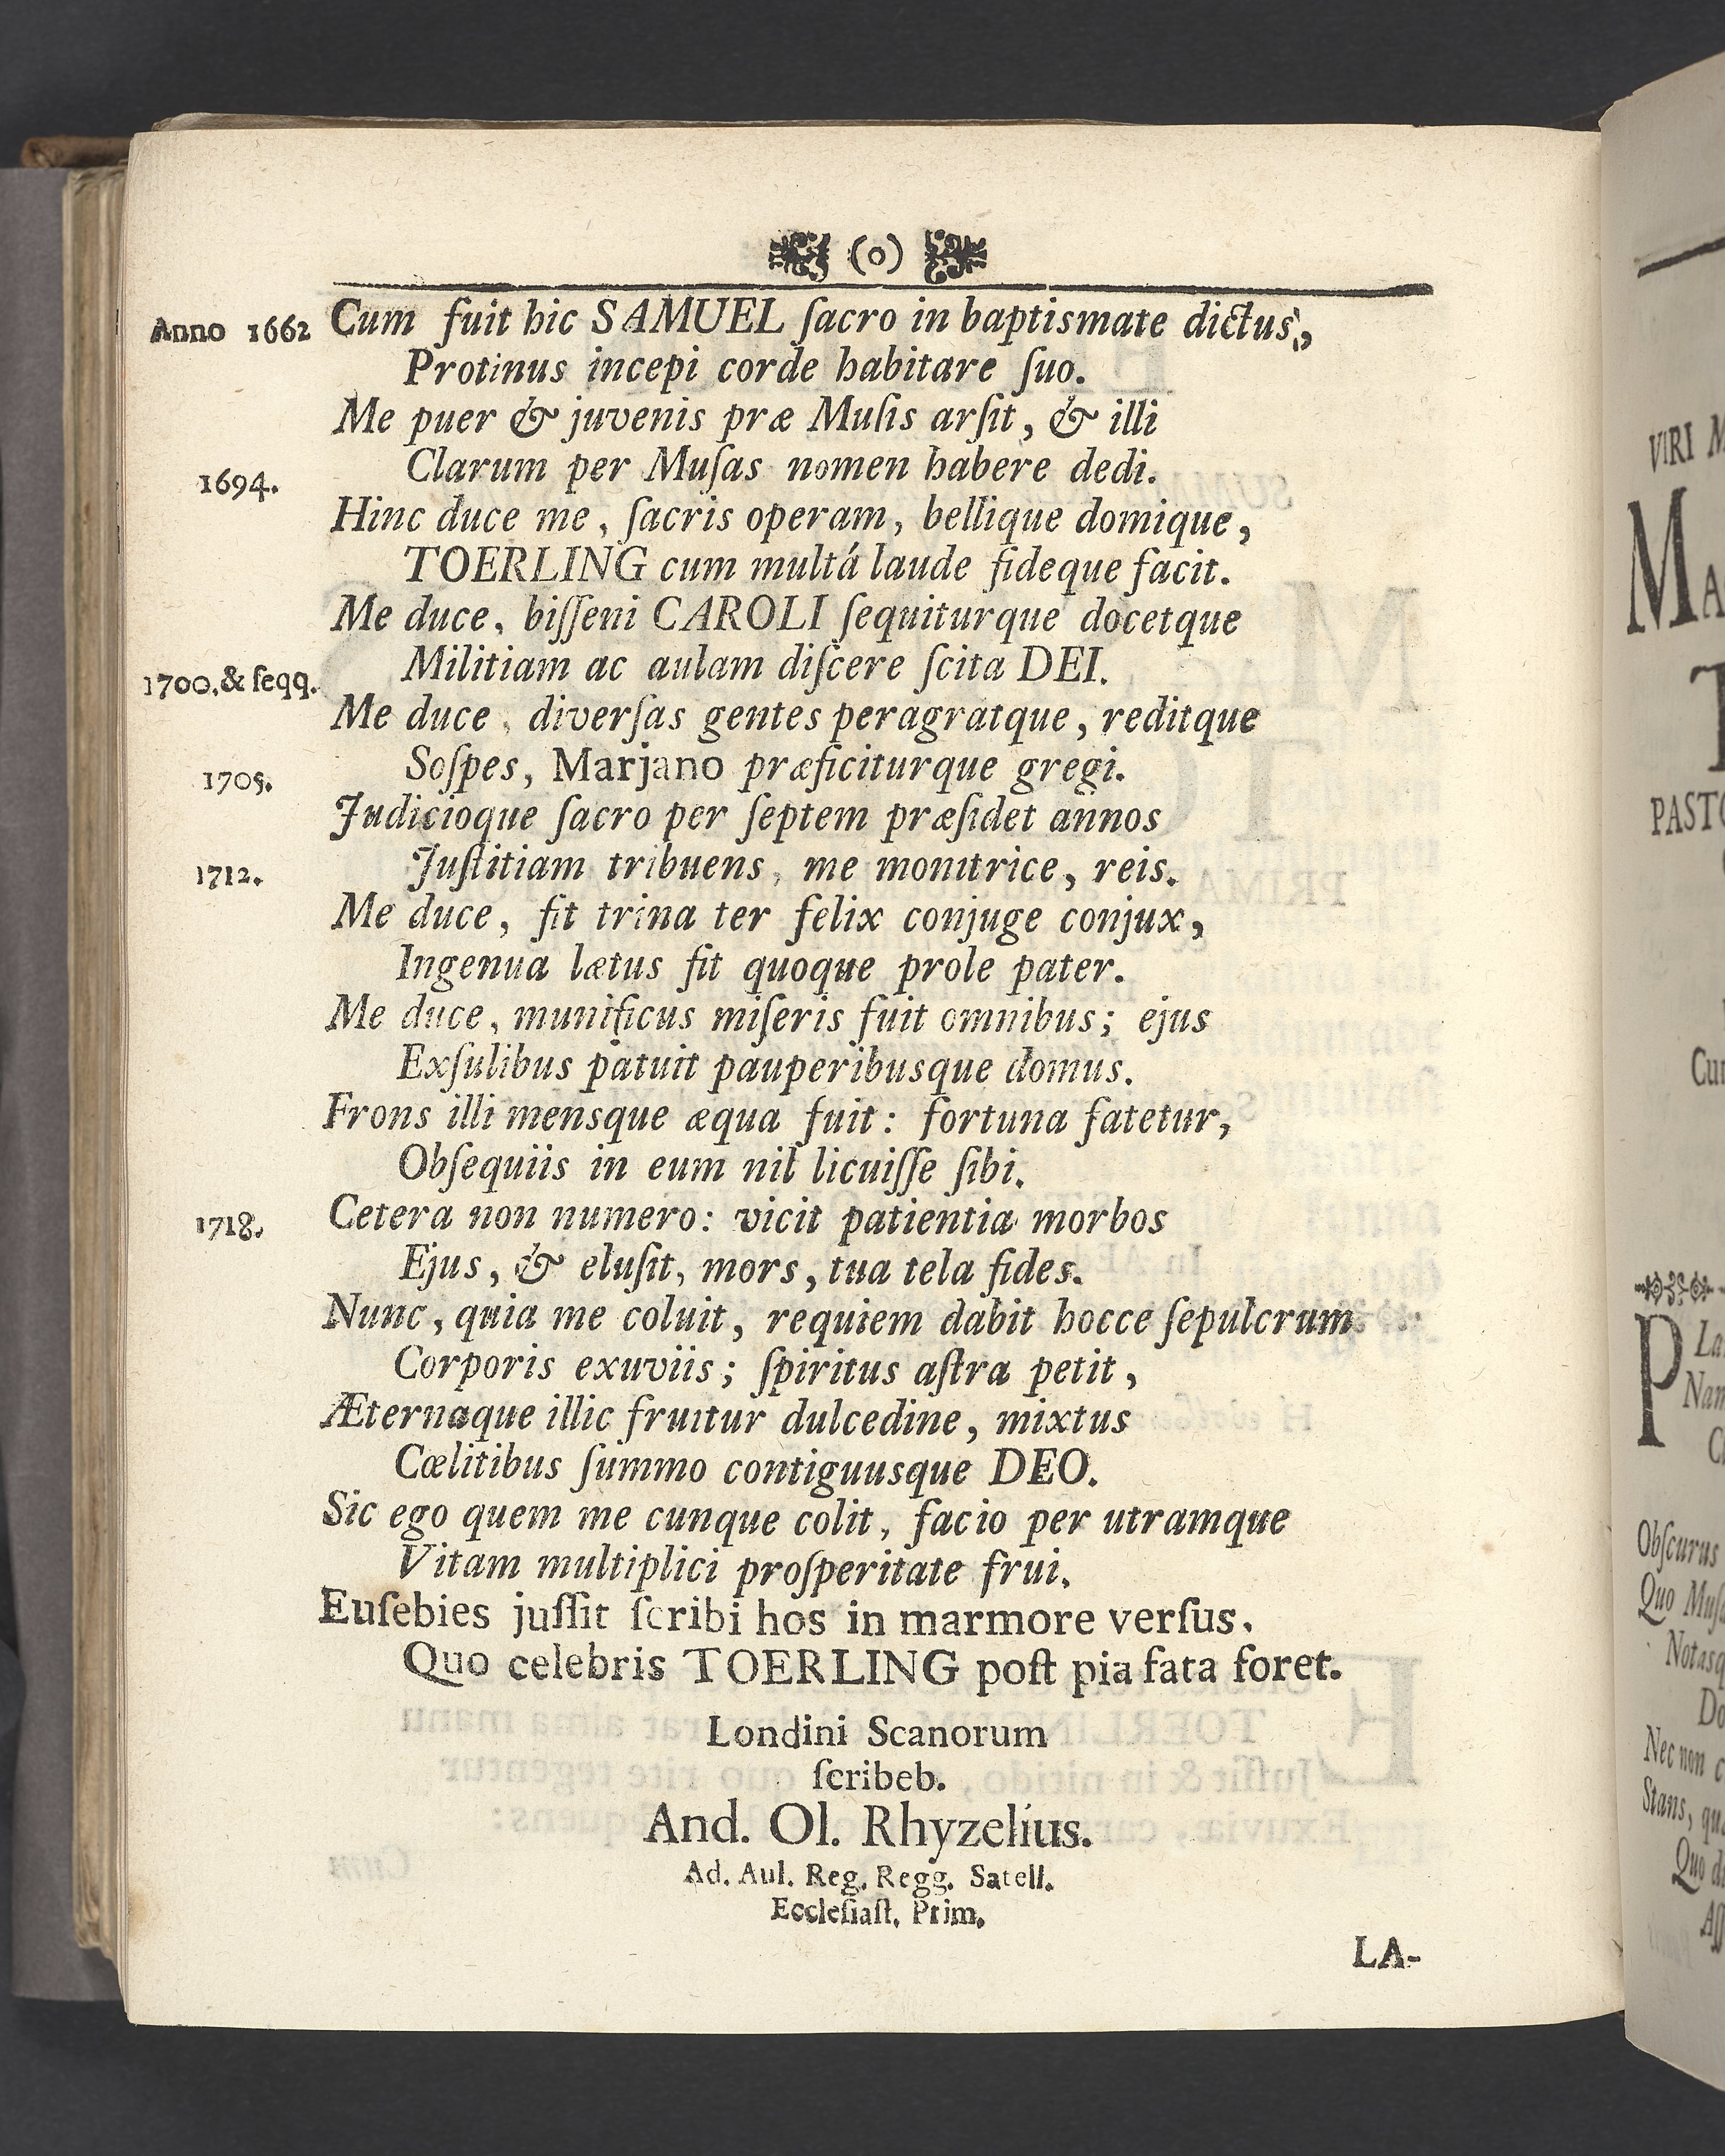 (o)
Anno 1662 Cum fuit hic SAMUEL ſacro in baptismate dictus,
Protinus incepi corde habitare ſuo.
Me puer & juvenis præ Muſis arſit, & illi
Clarum per Muſas nomen habere dedi.
1694.
Hinc duce me, ſacris operam, bellique domique,
TOERLING cum multá laude fideque facit.
Me duce, biſſeni CAROLI ſequiturque docetque
Militiam ac aulam diſcere ſcita DEI.
1700.& ſeqq.
Me duce, diverſas gentes peragratque, reditque
Soſpes, Marjano præficiturque gregi.
1705.
Judicioque ſacro per ſeptem præſidet annos
Juſtitiam tribuens, me monitrice, reis.
1712.
Me duce, fit trina ter felix conjuge conjux,
Ingenua lætus fit quoque prole pater.
Me duce, munificus miſeris fuit omnibus; ejus
Exſulibus patuit pauperibusque domus.
Frons illi mensque æqua fuit: fortuna fatetur,
Obſequiis in eum nil licuiſſe ſibi.
1718. Cetera non numero: vicit patientia morbos
Ejus, & eluſit, mors, tua tela fides.
Nunc, quia me coluit, requiem dabit hocce ſepulcrum
Corporis exuviis; ſpiritus aſtra petit,
Æternaque illic fruitur dulcedine, mixtus
Cœlitibus ſummo contiguusque DEO.
Sic ego quem me cunque colit, facio per utramque
Vitam multiplici proſperitate frui.
Euſebies juſſit ſcribi hos in marmore verſus.
Quo celebris TOERLING poſt pia fata foret.
Londini Scanorum
ſcribeb.
And. Ol. Rhyzelius.
Ad. Aul. Reg. Regg. Satell.
Eccleſiaſt. Prim.
LA-
VIRI M
MA
T
PASTO
Cum
P La
Nam
Obſcurus
Quo Muſ
Notasq
Do
Nec non c
Stans, qu
Quo d
Aſſ